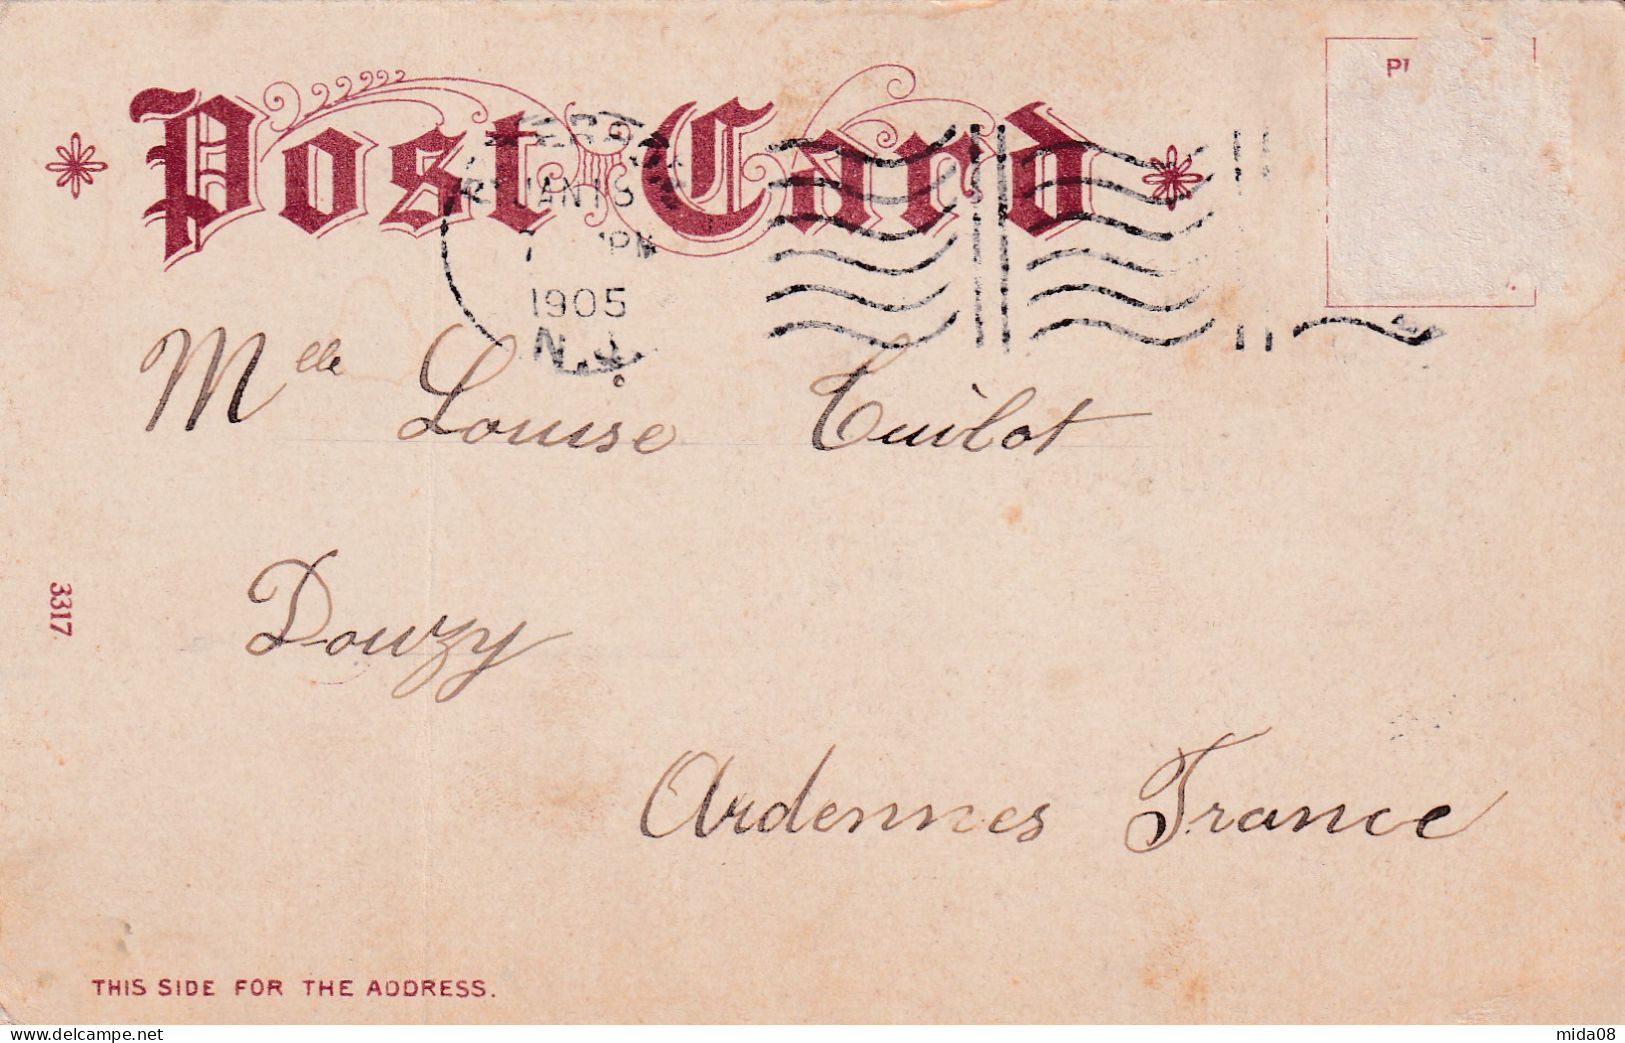 Post Card
JAN 18
7 PM
1905
N.J.
Mlle Louise Tuilot
Douzy
Ardennes France
3317
THIS SIDE FOR THE ADDRESS.
https://www.delcampe.net
mida08